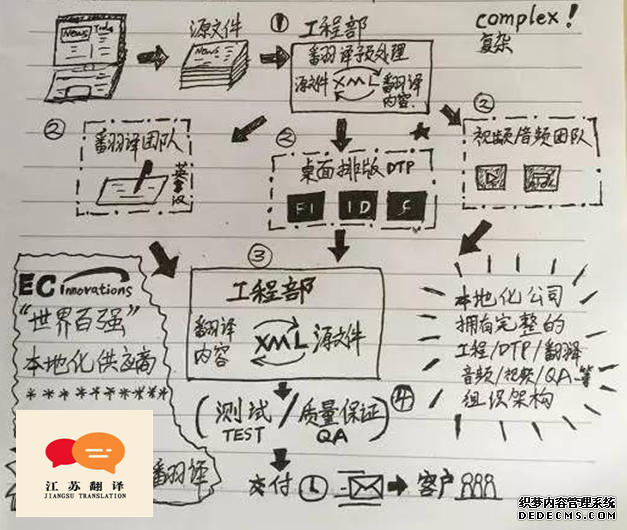 News Today
源文件
News
① 工程部
翻译预处理
源文件 XML 翻译
内容
complex!
复杂
②
翻译团队
英拿汉
②
桌面排版 DTP
FI ID f
②
视频/音频团队
EC Innovations
"世界百强"
本地化供应商
***********
翻译
③
工程部
翻译
内容 XML 源文件
(测试/质量保证) ④
TEST QA
交付 客户
本地化公司
拥有完整的
工程/DTP/翻译
音频/视频/QA 等
组织架构
江苏翻译
JIANGSU TRANSLATION
织梦内容管理系统
DEDECMS.COM